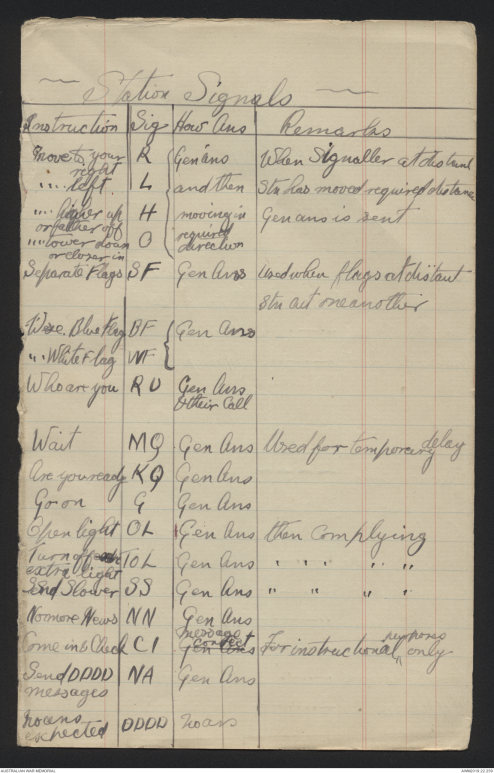 Station Signals
Instruction Sig How Ans Remarks
Move to your right R Gen ans When Signaller at distant
" " left L and then Stn has moved required distance
" " higher up or farther off H moving in Gen ans is sent
" " lower down or closer in O required direction
Separate Flags SF Gen Ans Used when flags at distant
Stn cut one another
Use Blue Flag BF Gen Ans
" " White Flag WF
Who are you RU Gen Ans
& their Call
Wait MQ Gen Ans Used for temporary delay
Are you ready KQ Gen Ans
Go on G Gen Ans
Open light OL Gen Ans then complying
Turn off extra light TOL Gen Ans " " " " "
Send Slower SS Gen Ans " " " "
No more News NN Gen Ans
Come in & Check CI message correct For instructional purposes only
Gen Ans
Send DDDD messages NA Gen Ans
No ans expected DDDD No ans
AUSTRALIAN WAR MEMORIAL